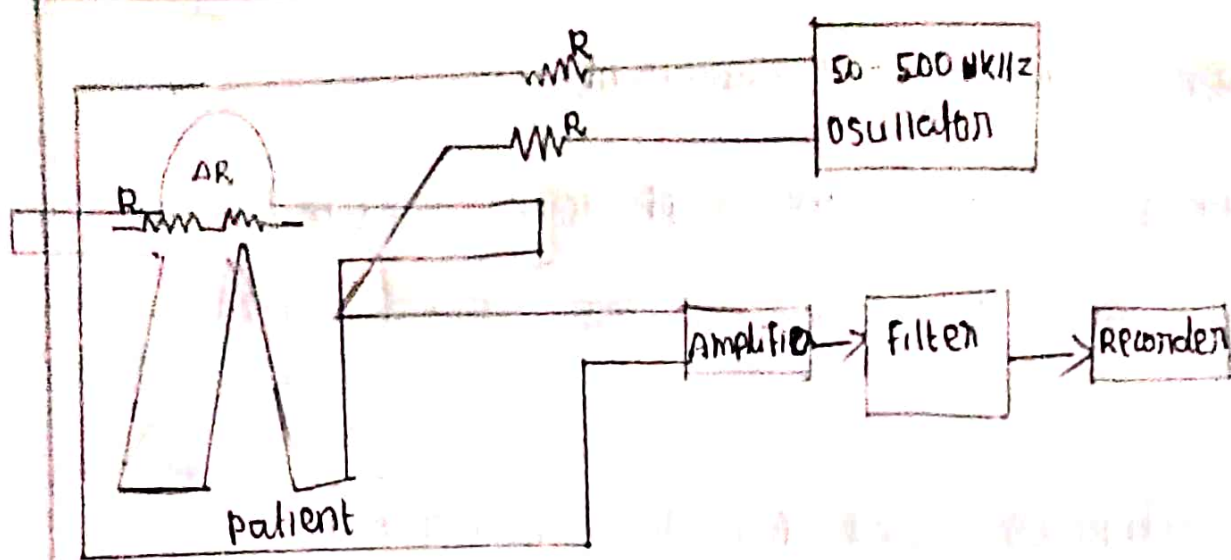 R
50 - 500 kHz
osullator
R
ΔR
R
Amplifie
Filter
Recorder
patient